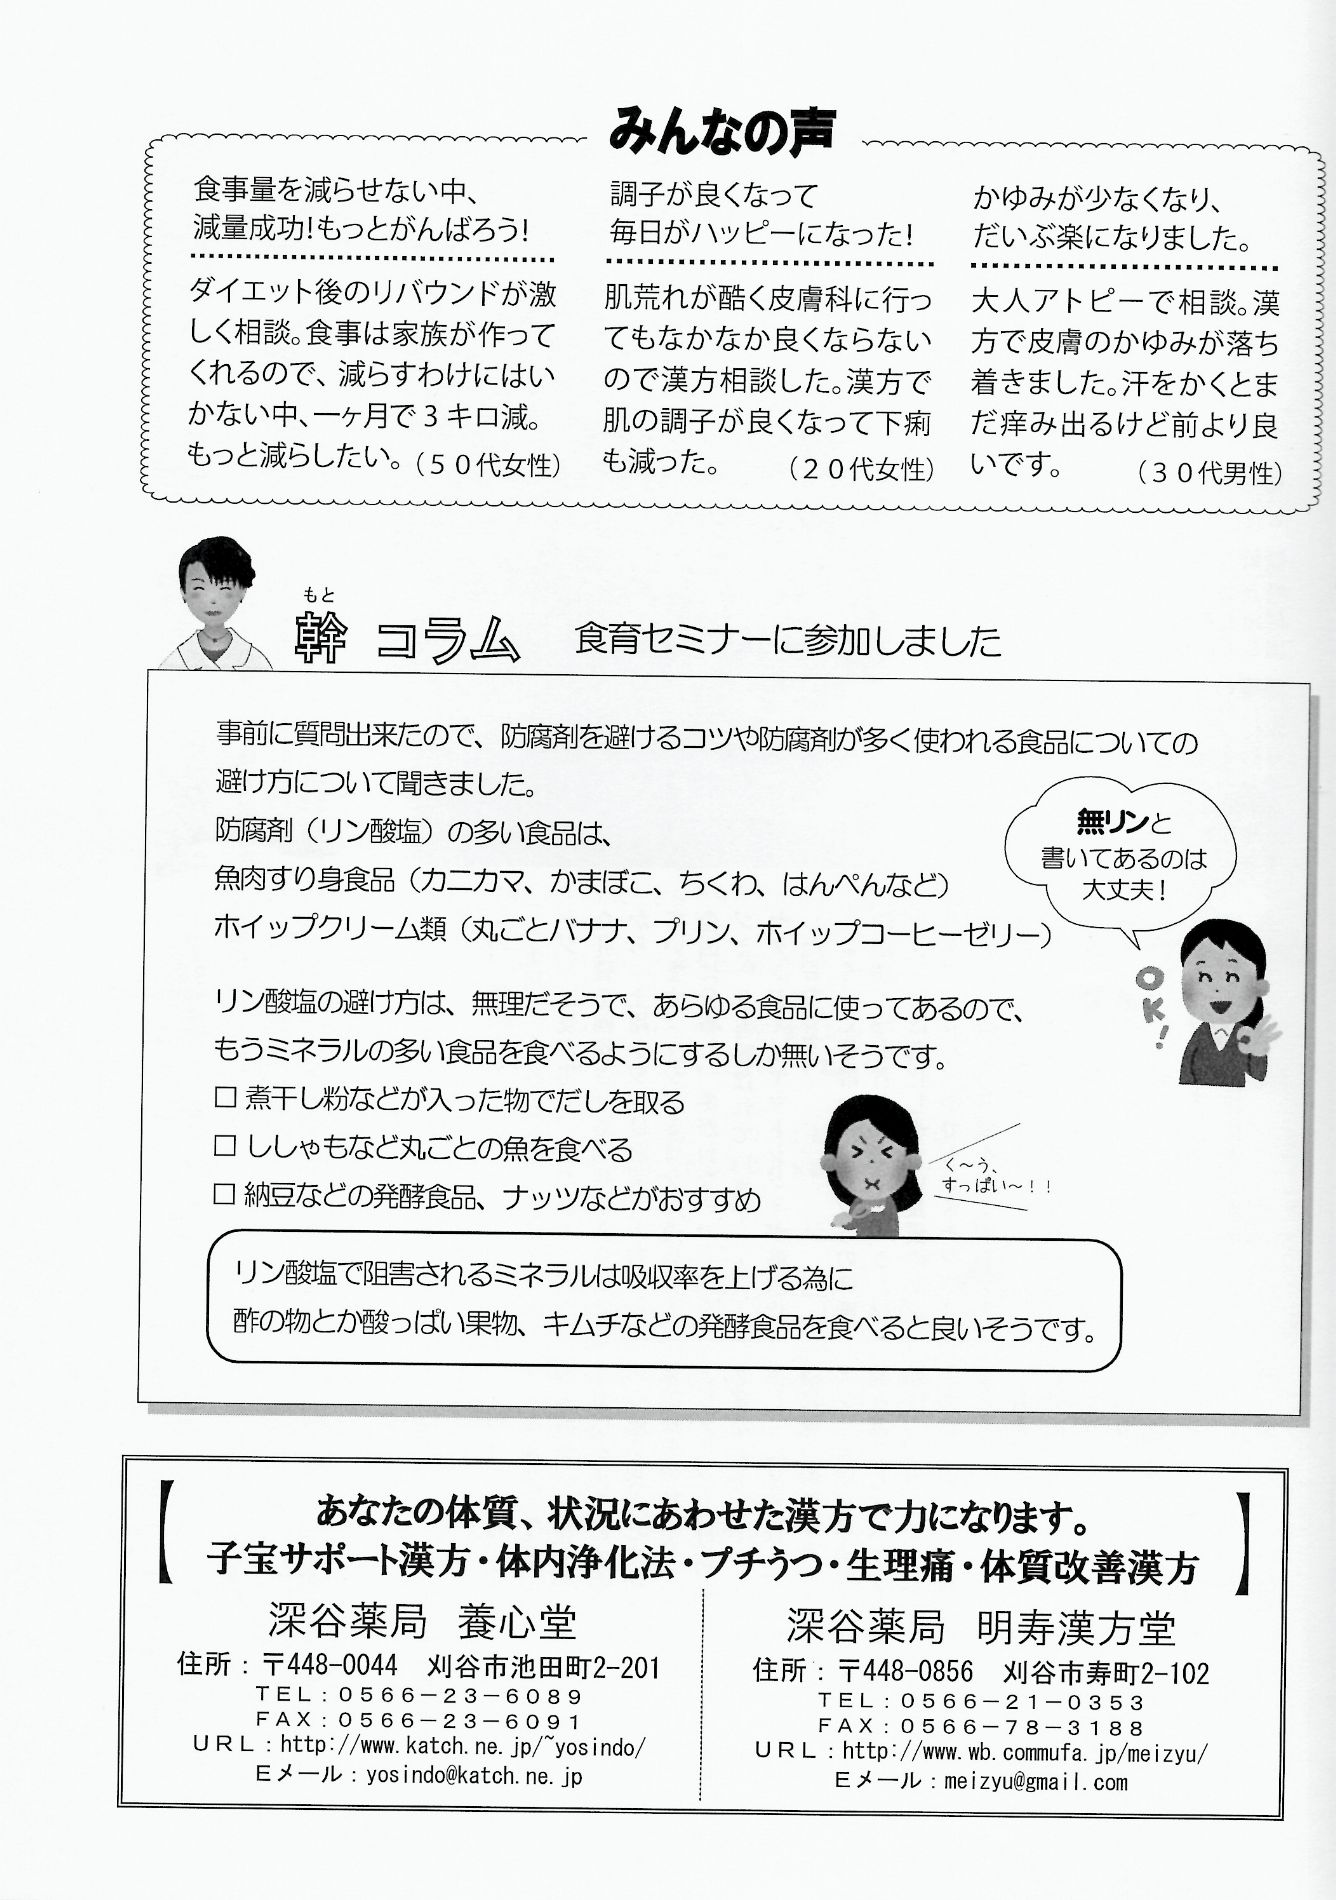 みんなの声
食事量を減らせない中、
減量成功!もっとがんばろう!
ダイエット後のリバウンドが激
しく相談。食事は家族が作って
くれるので、減らすわけにはい
かない中、一ヶ月で3キロ減。
もっと減らしたい。(50代女性)
調子が良くなって
毎日がハッピーになった!
肌荒れが酷く皮膚科に行っ
てもなかなか良くならない
ので漢方相談した。漢方で
肌の調子が良くなって下痢
も減った。 (20代女性)
かゆみが少なくなり、
だいぶ楽になりました。
大人アトピーで相談。漢
方で皮膚のかゆみが落ち
着きました。汗をかくとま
だ痒み出るけど前より良
いです。 (30代男性)
もと
幹 コラム 食育セミナーに参加しました
事前に質問出来たので、防腐剤を避けるコツや防腐剤が多く使われる食品についての
避け方について聞きました。
防腐剤(リン酸塩)の多い食品は、
魚肉すり身食品(カニカマ、かまぼこ、ちくわ、はんぺんなど)
ホイップクリーム類(丸ごとバナナ、プリン、ホイップコーヒーゼリー)
無リンと
書いてあるのは
大丈夫!
OK!
リン酸塩の避け方は、無理だそうで、あらゆる食品に使ってあるので、
もうミネラルの多い食品を食べるようにするしか無いそうです。
□ 煮干し粉などが入った物でだしを取る
□ ししゃもなど丸ごとの魚を食べる
□ 納豆などの発酵食品、ナッツなどがおすすめ
く~う、
すっぱい~!!
リン酸塩で阻害されるミネラルは吸収率を上げる為に
酢の物とか酸っぱい果物、キムチなどの発酵食品を食べると良いそうです。
【あなたの体質、状況にあわせた漢方で力になります。
子宝サポート漢方・体内浄化法・プチうつ・生理痛・体質改善漢方】
深谷薬局 養心堂
住所：〒448-0044 刈谷市池田町2-201
TEL：0566－23－6089
FAX：0566－23－6091
URL：http://www.katch.ne.jp/~yosindo/
Eメール：yosindo@katch.ne.jp
深谷薬局 明寿漢方堂
住所：〒448-0856 刈谷市寿町2-102
TEL：0566－21－0353
FAX：0566－78－3188
URL：http://www.wb.commufa.jp/meizyu/
Eメール：meizyu@gmail.com